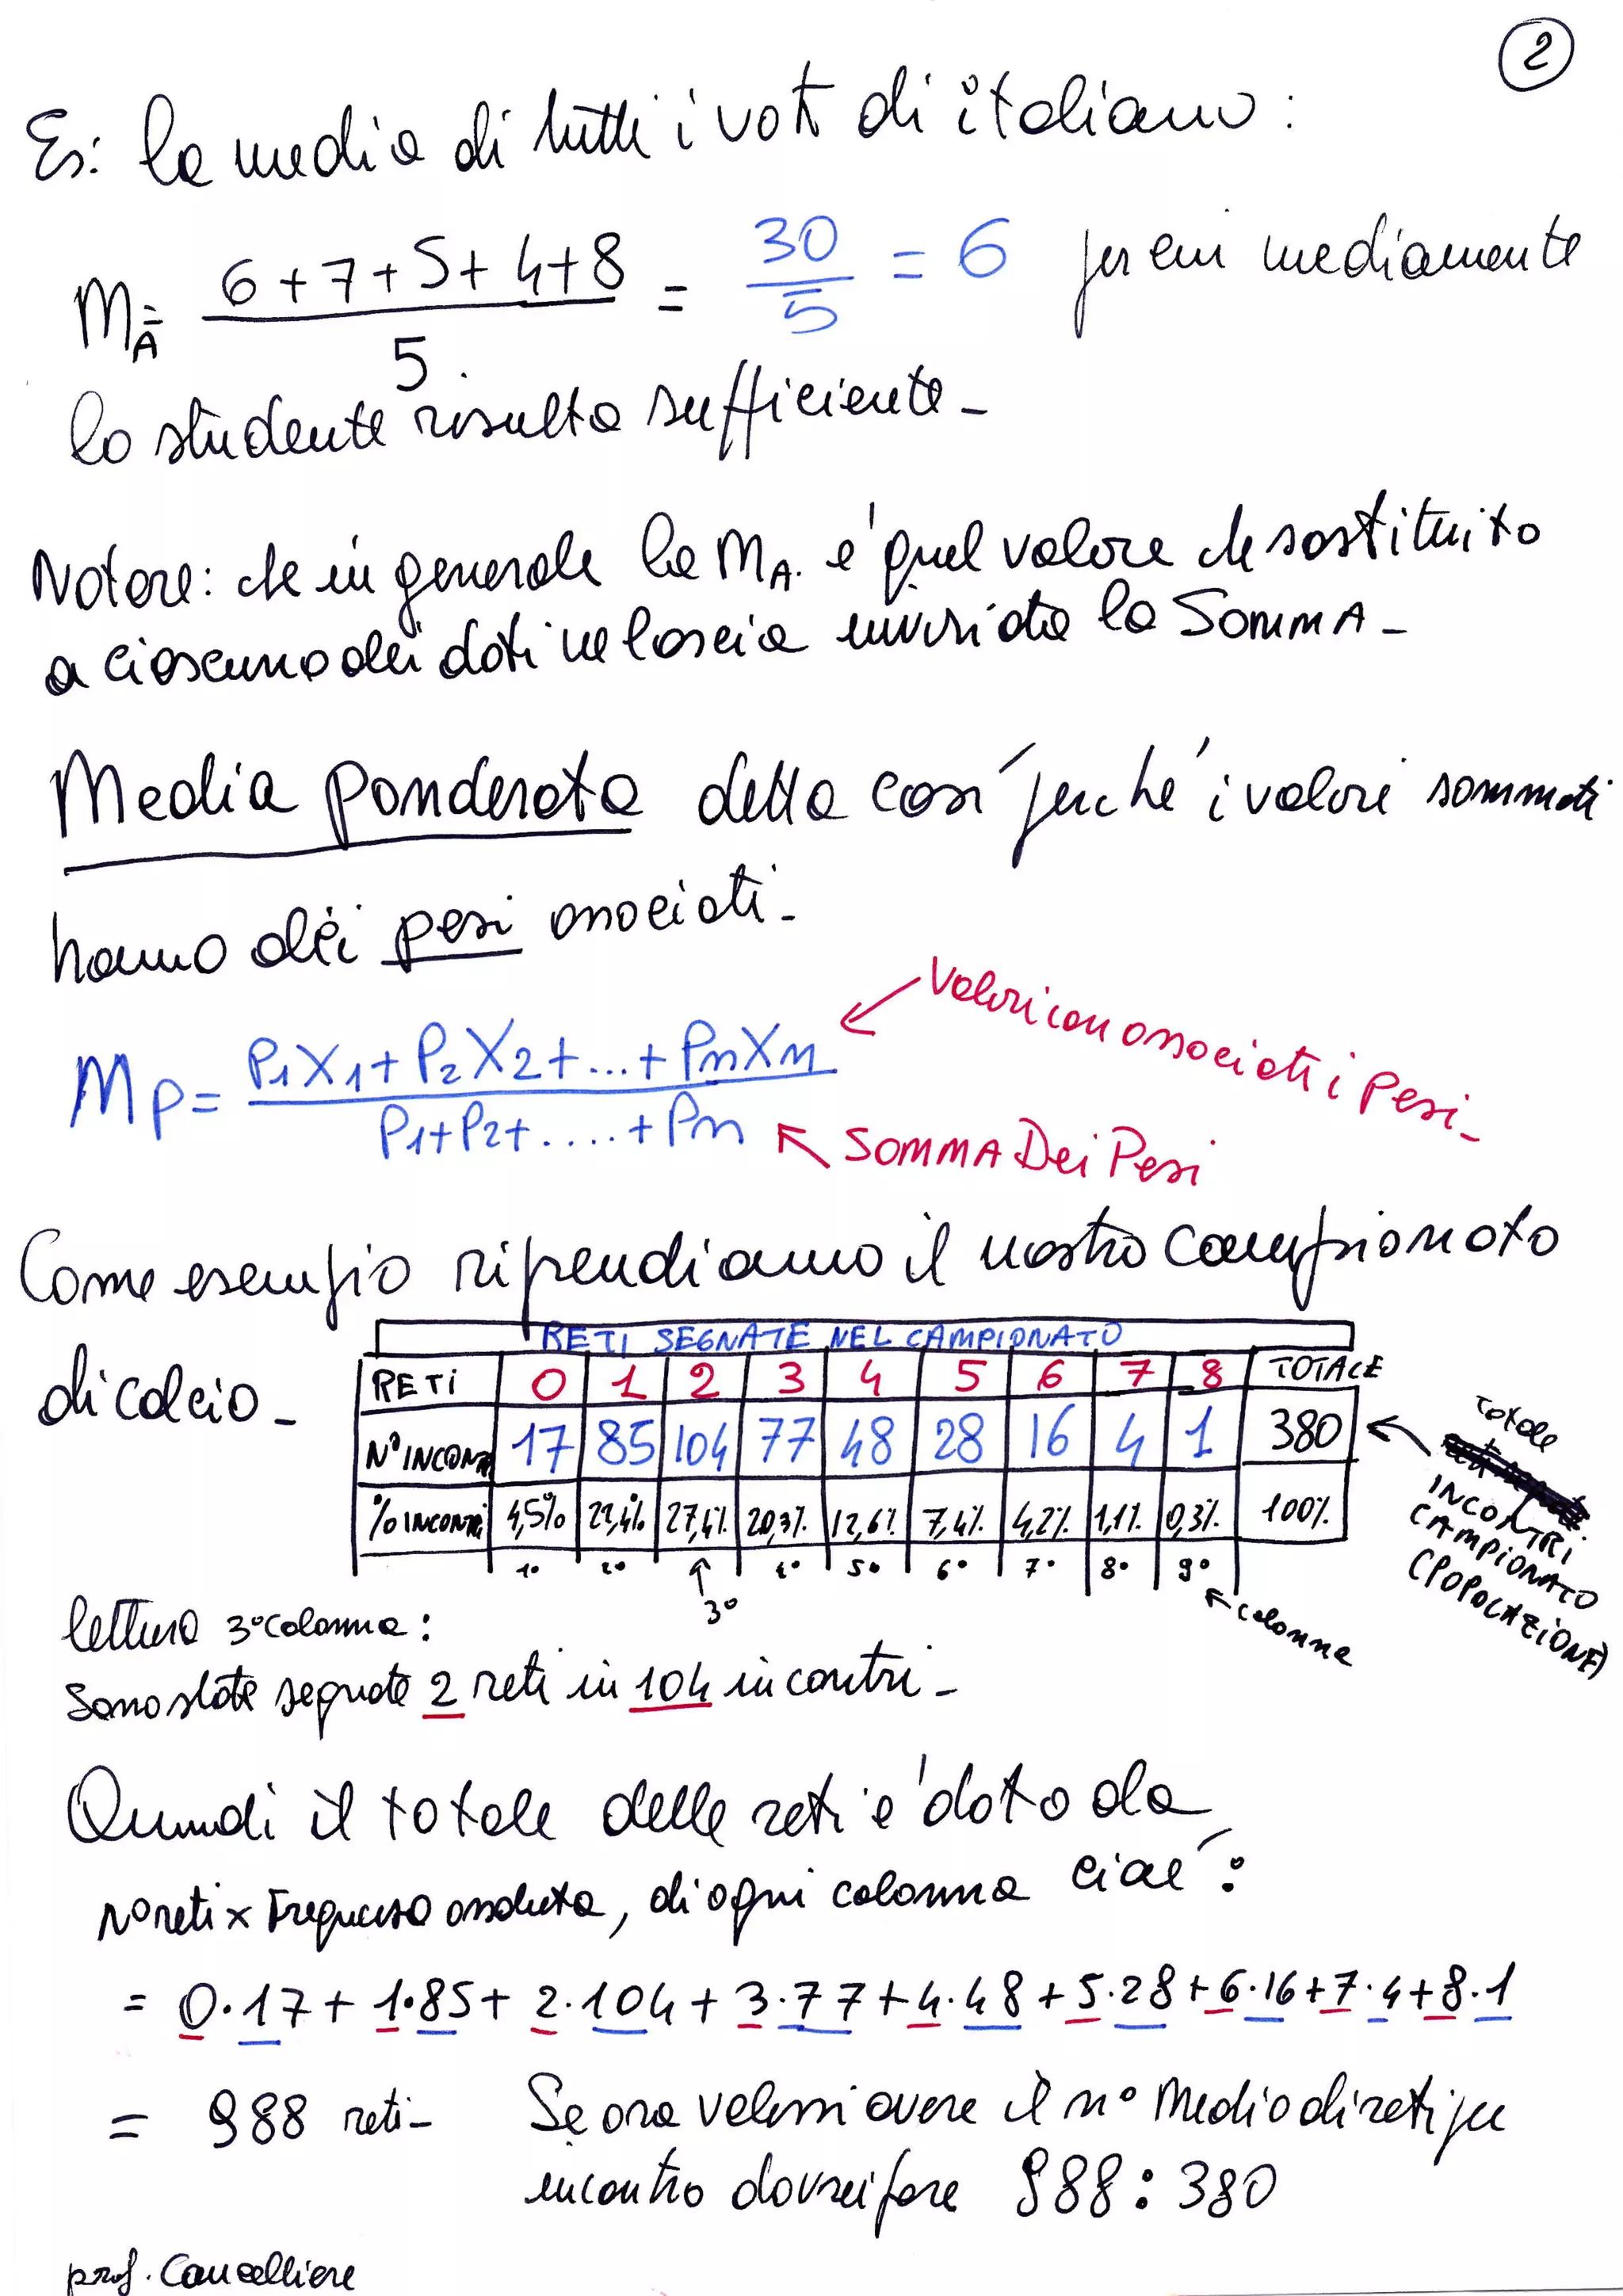 2
Es: la media di tutti i voti di italiano:
M_A = (6+7+5+4+8)/5 = 30/5 = 6 per cui mediamente
lo studente risulta sufficiente -
Notare: che in generale la M_A. e' quel valore che sostituito
a ciascuno dei dati ne lascia invariata la SommA -
Media ponderata detta così perché i valori sommati
hanno dei pesi associati -
Mp = (P1X1 + P2X2 + ... + PnXn)/(P1 + P2 + .... + Pn)
Valori con associati i Pesi -
SOMMA Dei Pesi
Come esempio riprendiamo il nostro campionato
di calcio -
RETI SEGNATE NEL CAMPIONATO
RETI 0 1 2 3 4 5 6 7 8 TOTALE
N° INCONT 17 85 104 77 48 28 16 4 1 380
% INCONTRI 4,5% 22,4% 27,4% 20,3% 12,6% 7,4% 4,2% 1,1% 0,3% 100%
1° 2° 3° 4° 5° 6° 7° 8° 9° colonna
Totale
INCONTRI
CAMPIONATO
(POPOLAZIONE)
lettura 3° colonna:
Sono state segnate 2 reti in 104 incontri -
Quindi il totale delle reti e' dato da
N° reti x Frequenza assoluta, di ogni colonna cioé:
= 0·17 + 1·85 + 2·104 + 3·77 + 4·48 + 5·28 + 6·16 + 7·4 + 8·1
= 988 reti - Se ora volessi avere il n° Medio di reti per
incontro dovrei fare 988 : 380
prof. Cancelliere